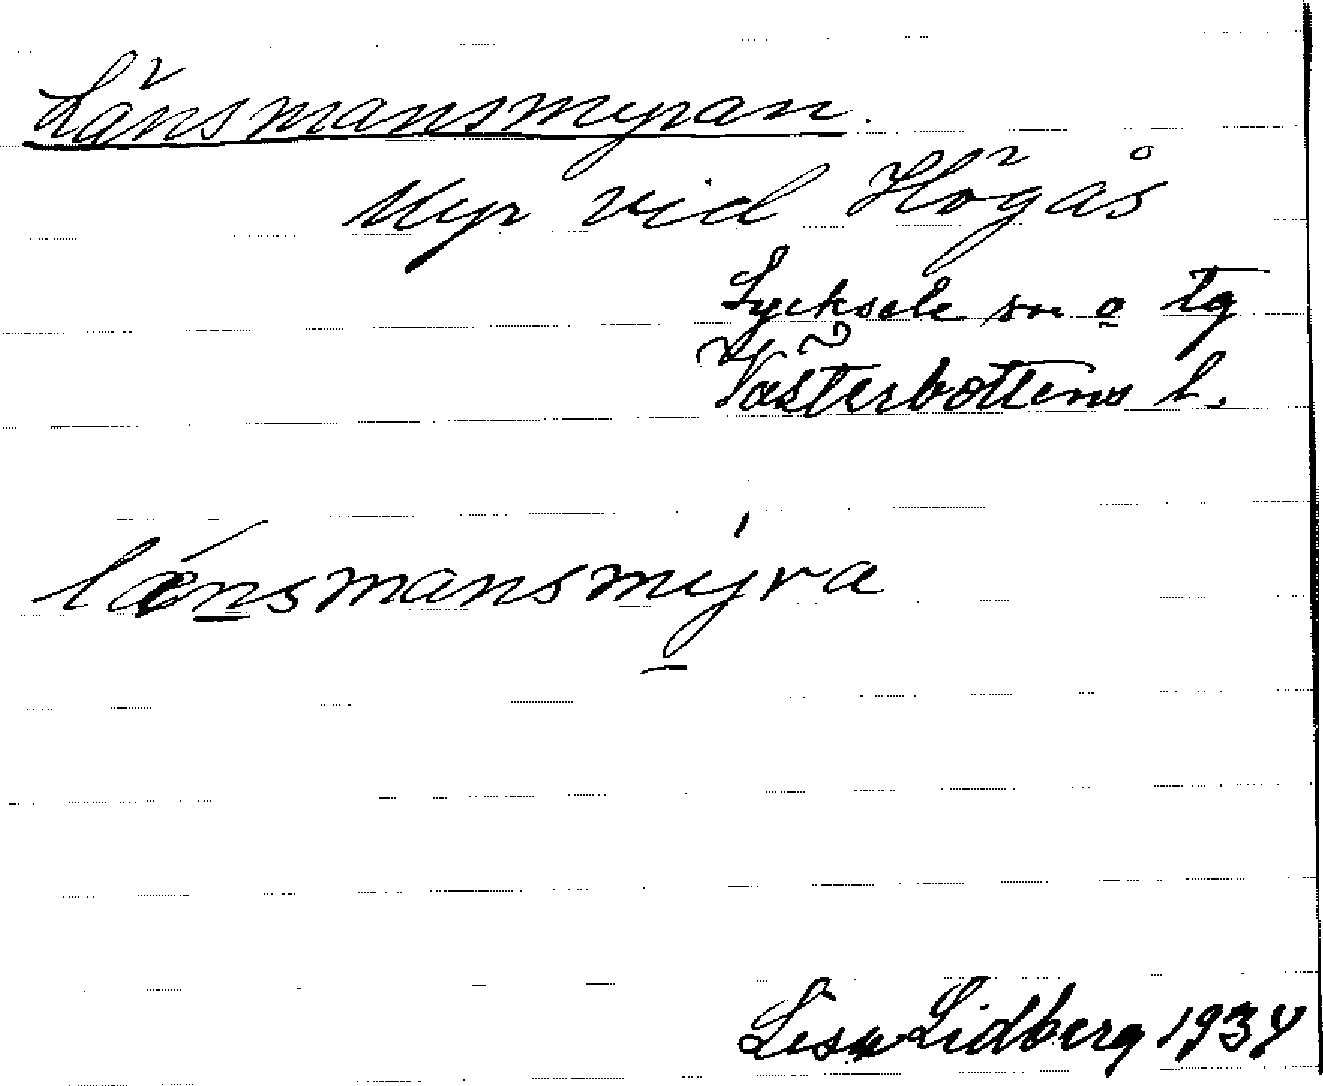 Länsmansmyran.
Myr vid Högås
Lycksele sn o tg
Västerbottens l.
lænsmansmyra
Lisa Lidberg 1934